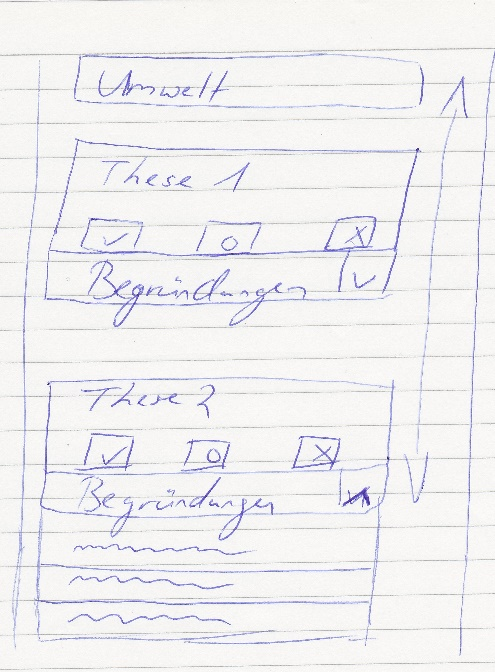 Umwelt
These 1
Begründungen
These 2
Begründungen